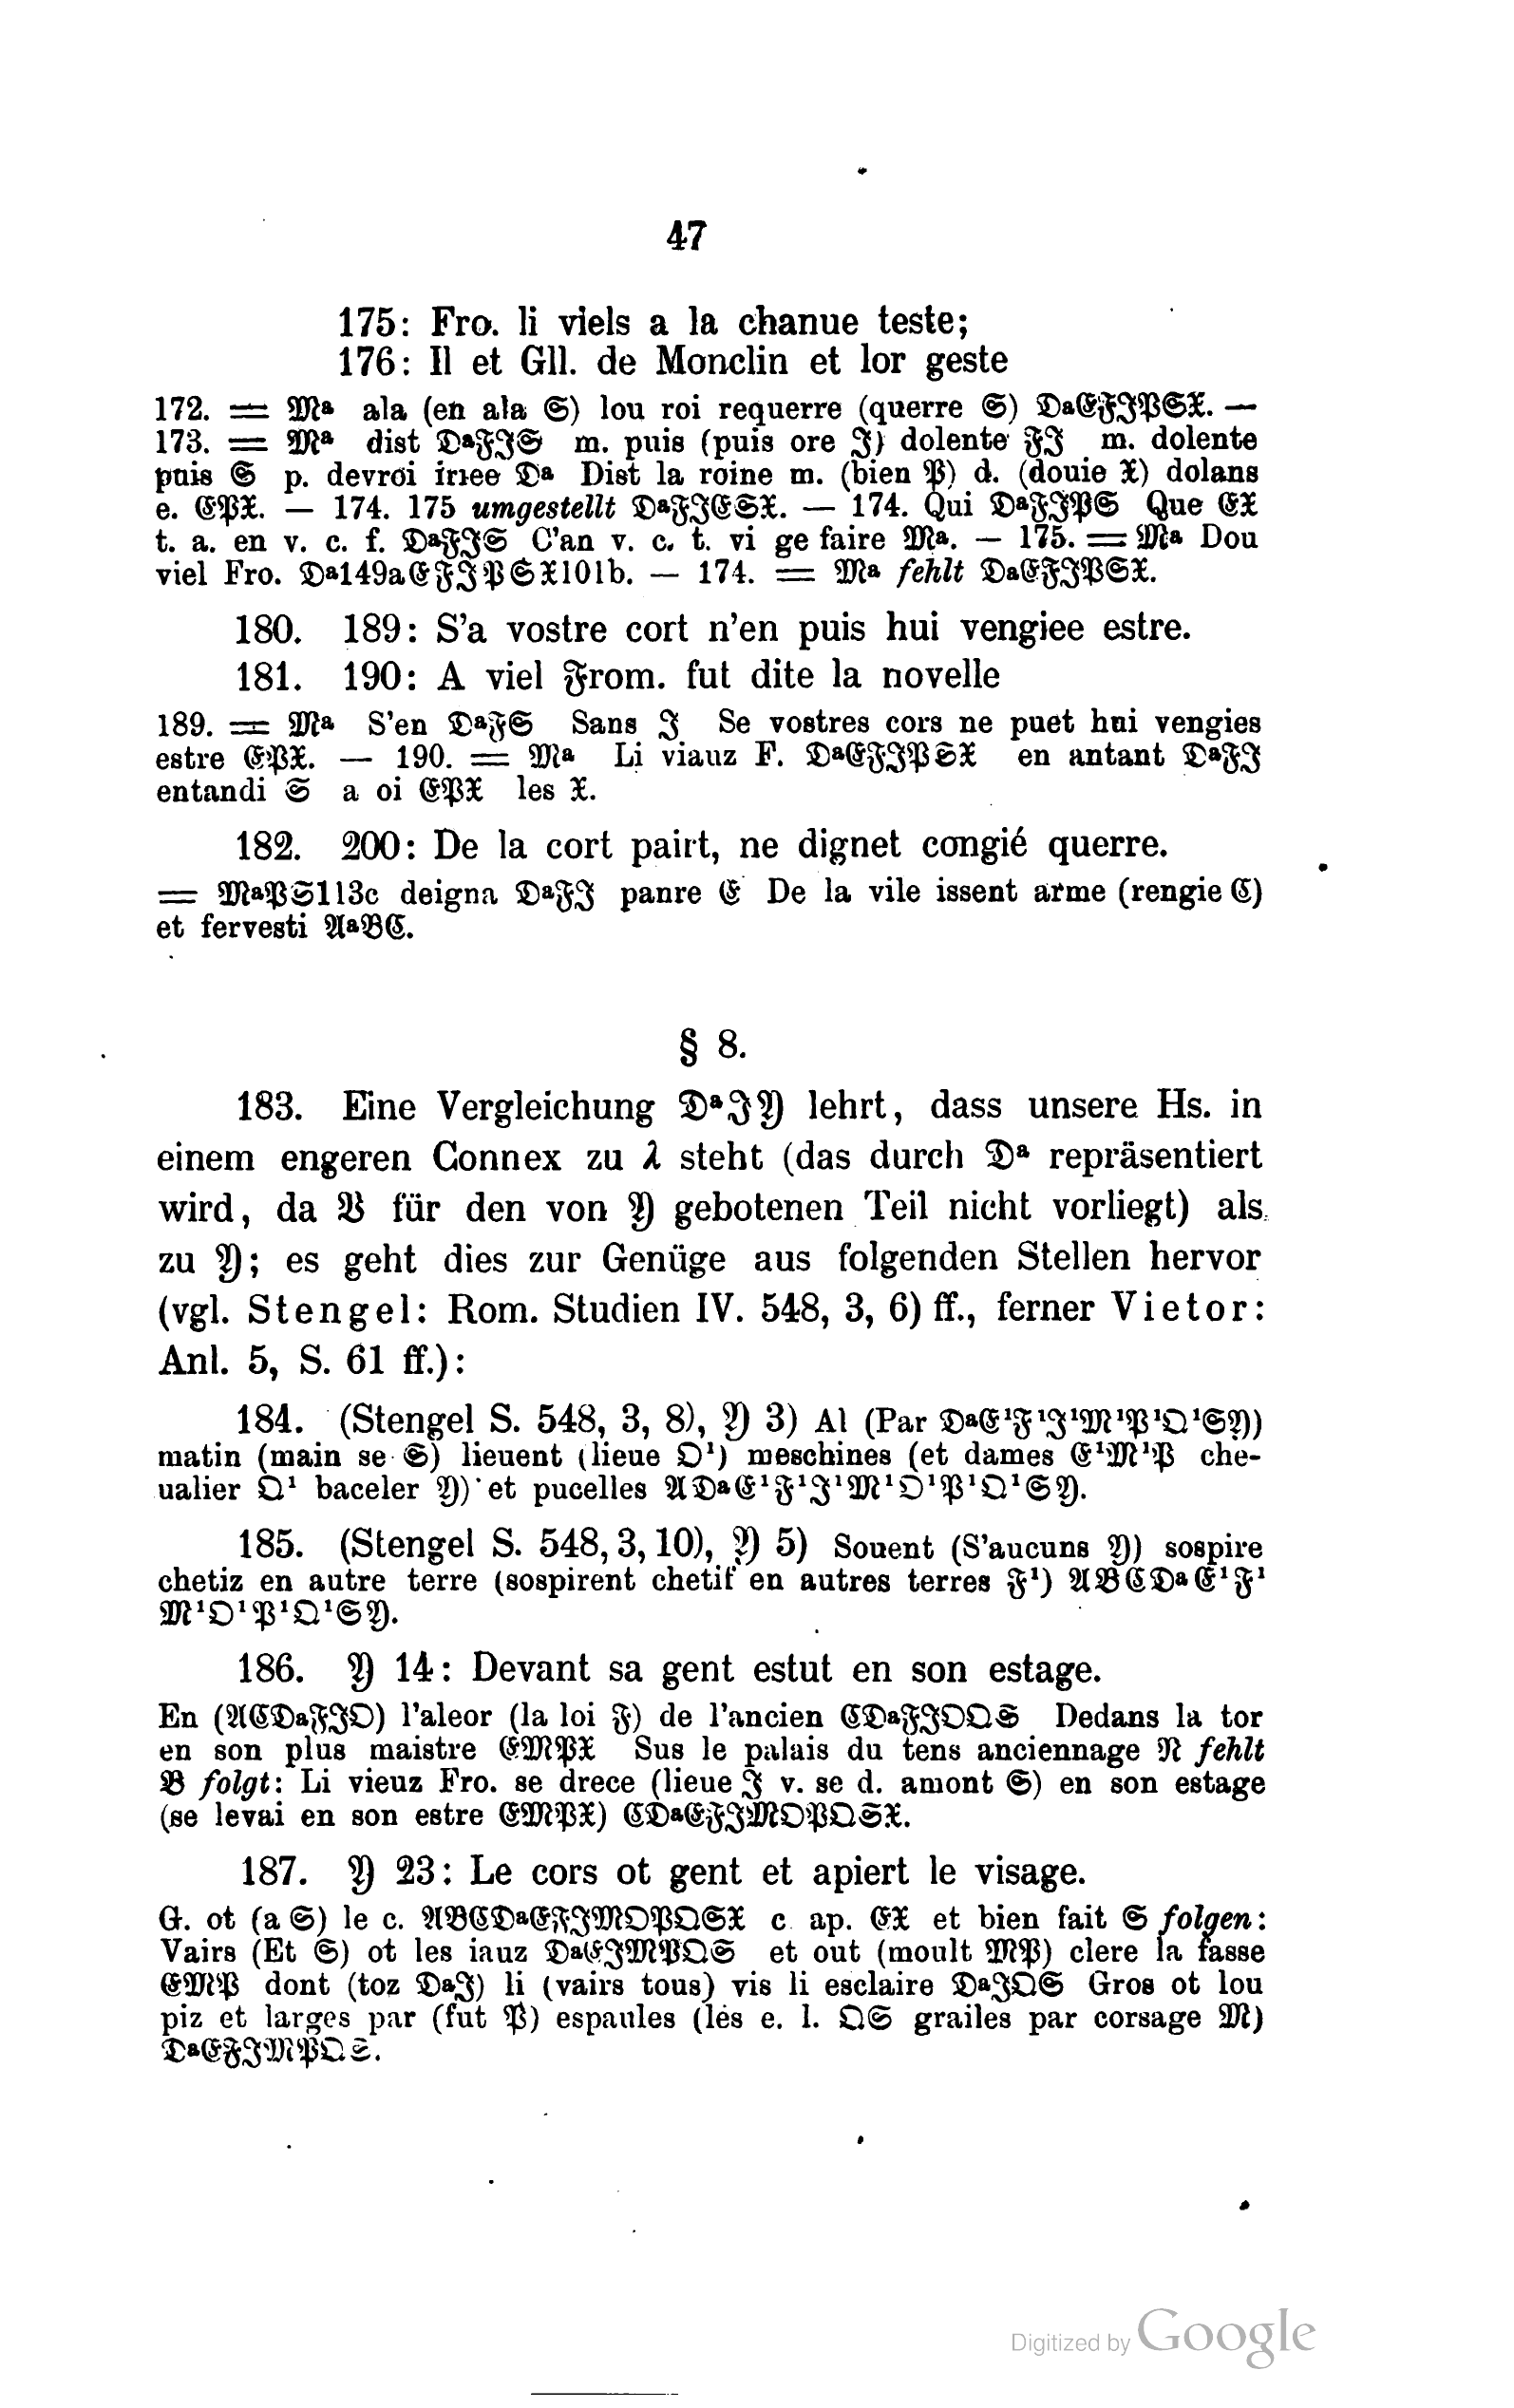 47
175: Fro. li viels a la chanue teste;
176: Il et Gll. de Monclin et lor geste
172. = 𝔐ª ala (en ala 𝔖) lou roi requerre (querre 𝔖) 𝔇ª𝔈𝔉𝔍𝔓𝔖𝔛. —
173. = 𝔐ª dist 𝔇ª𝔉𝔍𝔖 m. puis (puis ore 𝔍) dolente 𝔉𝔍 m. dolente
puis 𝔖 p. devroi iriee 𝔇ª Dist la roine m. (bien 𝔓) d. (douie 𝔛) dolans
e. 𝔈𝔓𝔛. — 174. 175 umgestellt 𝔇ª𝔉𝔍𝔈𝔖𝔛. — 174. Qui 𝔇ª𝔉𝔍𝔓𝔖 Que 𝔈𝔛
t. a. en v. c. f. 𝔇ª𝔉𝔍𝔖 C'an v. c. t. vi ge faire 𝔐ª. — 175. = 𝔐ª Dou
viel Fro. 𝔇ª149a𝔈𝔉𝔍𝔓𝔖𝔛101b. — 174. = 𝔐ª fehlt 𝔇ª𝔈𝔉𝔍𝔓𝔖𝔛.
180. 189: S'a vostre cort n'en puis hui vengiee estre.
181. 190: A viel 𝔉rom. fut dite la novelle
189. = 𝔐ª S'en 𝔇ª𝔉𝔖 Sans 𝔍 Se vostres cors ne puet hui vengies
estre 𝔈𝔓𝔛. — 190. = 𝔐ª Li viauz F. 𝔇ª𝔈𝔉𝔍𝔓𝔖𝔛 en antant 𝔇ª𝔉𝔍
entandi 𝔖 a oi 𝔈𝔓𝔛 les 𝔛.
182. 200: De la cort pairt, ne dignet congié querre.
= 𝔐ª𝔓𝔖113c deigna 𝔇ª𝔉𝔍 panre 𝔈 De la vile issent arme (rengie ℭ)
et fervesti 𝔄ª𝔅ℭ.
§ 8.
183. Eine Vergleichung 𝔇ª𝔍𝔜 lehrt, dass unsere Hs. in
einem engeren Connex zu λ steht (das durch 𝔇ª repräsentiert
wird, da 𝔅 für den von 𝔜 gebotenen Teil nicht vorliegt) als
zu 𝔜; es geht dies zur Genüge aus folgenden Stellen hervor
(vgl. Stengel: Rom. Studien IV. 548, 3, 6) ff., ferner Vietor:
Anl. 5, S. 61 ff.):
184. (Stengel S. 548, 3, 8), 𝔜 3) Al (Par 𝔇ª𝔈¹𝔉¹𝔍¹𝔐¹𝔓¹𝔔¹𝔖𝔜)
matin (main se 𝔖) lieuent (lieue 𝔒¹) meschines (et dames 𝔈¹𝔐¹𝔓 che-
ualier 𝔔¹ baceler 𝔜) et pucelles 𝔄𝔇ª𝔈¹𝔉¹𝔍¹𝔐¹𝔒¹𝔓¹𝔔¹𝔖𝔜.
185. (Stengel S. 548, 3, 10), 𝔜 5) Souent (S'aucuns 𝔜) sospire
chetiz en autre terre (sospirent chetif en autres terres 𝔉¹) 𝔄𝔅ℭ𝔇ª𝔈¹𝔉¹
𝔐¹𝔒¹𝔓¹𝔔¹𝔖𝔜.
186. 𝔜 14: Devant sa gent estut en son estage.
En (𝔄ℭ𝔇ª𝔉𝔍𝔒) l'aleor (la loi 𝔉) de l'ancien ℭ𝔇ª𝔉𝔍𝔒𝔔𝔖 Dedans la tor
en son plus maistre 𝔈𝔐𝔓𝔛 Sus le palais du tens anciennage 𝔑 fehlt
𝔅 folgt: Li vieuz Fro. se drece (lieue 𝔍 v. se d. amont 𝔖) en son estage
(se levai en son estre 𝔈𝔐𝔓𝔛) ℭ𝔇ª𝔈𝔉𝔍𝔐𝔒𝔓𝔔𝔖𝔛.
187. 𝔜 23: Le cors ot gent et apiert le visage.
G. ot (a 𝔖) le c. 𝔄𝔅ℭ𝔇ª𝔈𝔉𝔍𝔐𝔒𝔓𝔔𝔖𝔛 c ap. 𝔈𝔛 et bien fait 𝔖 folgen:
Vairs (Et 𝔖) ot les iauz 𝔇ª𝔈𝔍𝔐𝔓𝔔𝔖 et out (moult 𝔐𝔓) clere la fasse
𝔈𝔐𝔓 dont (toz 𝔇ª𝔍) li (vairs tous) vis li esclaire 𝔇ª𝔍𝔔𝔖 Gros ot lou
piz et larges par (fut 𝔓) espaules (les e. l. 𝔔𝔖 grailes par corsage 𝔐)
𝔇ª𝔈𝔉𝔍𝔐𝔓𝔔𝔖.
Digitized by Google